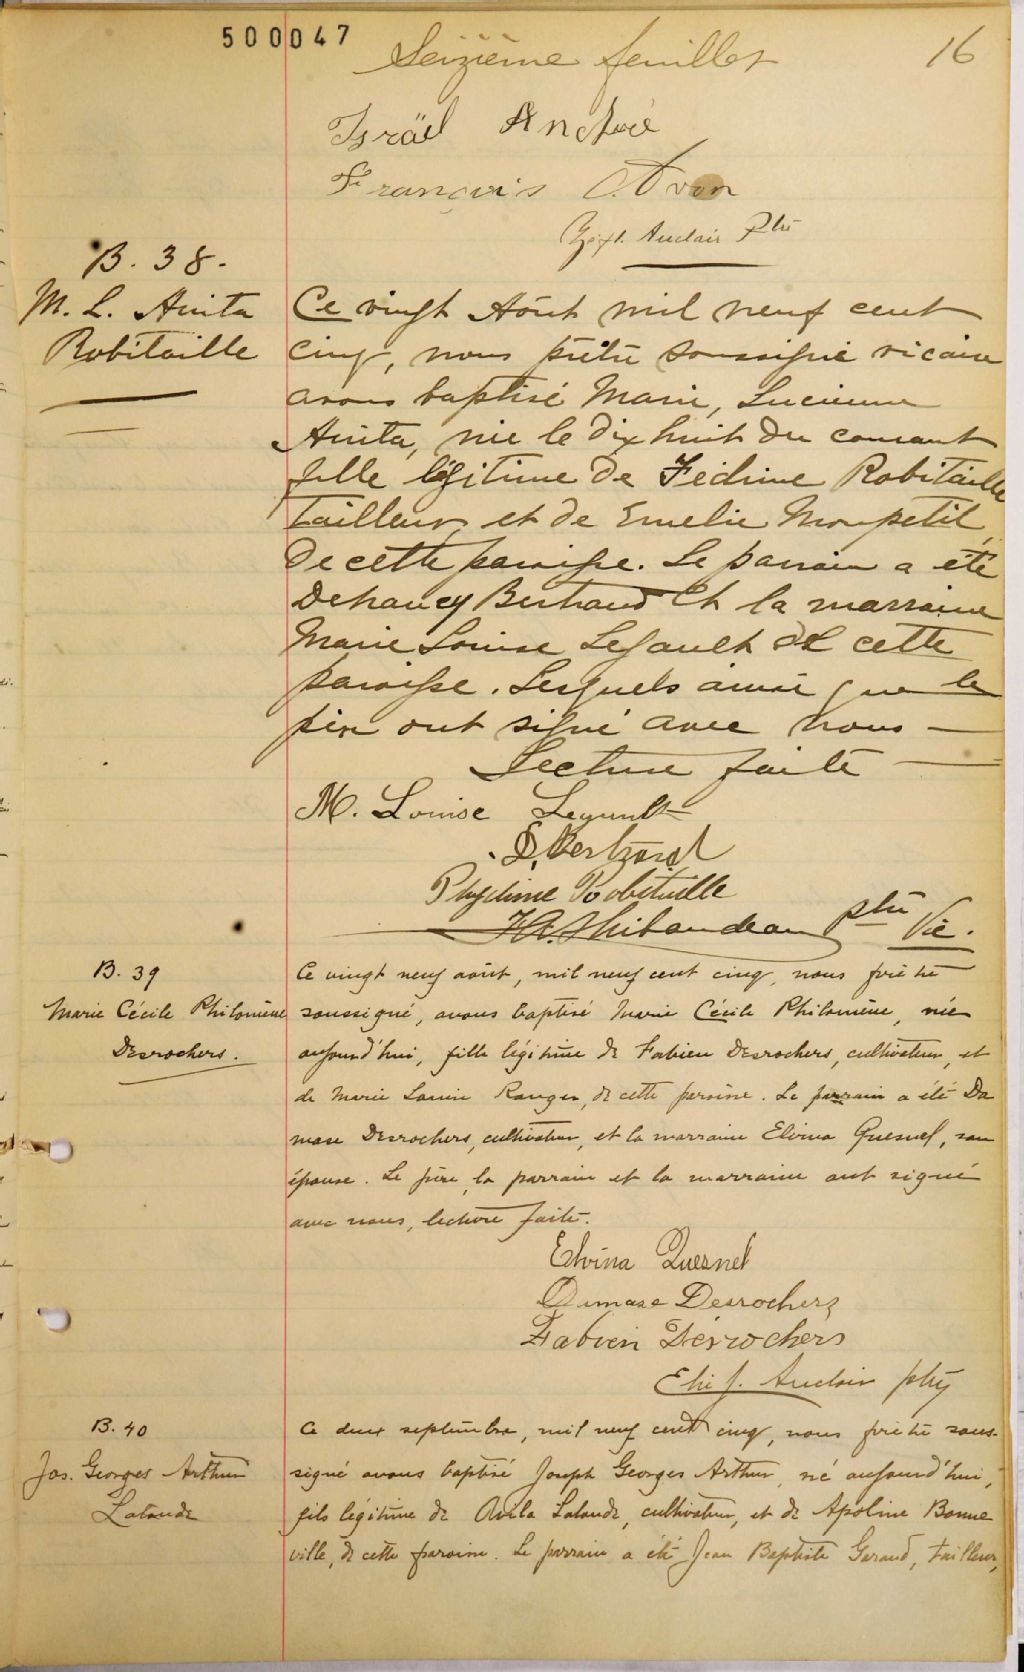 500047
Seizième feuillet 16
Israël
François Avon
Auclair Ptre
B. 38.
M. L. Anita
Robitaille
Ce vingt Août mil neuf cent
cinq, nous prêtre soussigné vicaire
avons baptisé Marie, Lucienne
Anita, née le dix huit du courant
fille légitime de Fédime Robitaille
tailleur, et de Emelie Monpetit,
de cette paroisse. Le parrain a été
Bertrand et la marraine
Marie Louise Legault de cette
paroisse. Lesquels ainsi que le
père ont signé avec nous —
Lecture faite —
M. Louise Legault
D. Bertrand
Phydime Robitaille
H.A. Thibaudeau Ptre Vic.
B. 39
Marie Cécile Philomène
Desrochers.
Ce vingt neuf août, mil neuf cent cinq, nous prêtre
soussigné, avons baptisé Marie Cécile Philomène, née
aujourd'hui, fille légitime de Fabien Desrochers, cultivateur, et
de Marie Louise Ranger, de cette paroisse. Le parrain a été Da
mase Desrochers, cultivateur, et la marraine Elvina Quesnel, son
épouse. Le père, le parrain et la marraine ont signé
avec nous, lecture faite.
Elvina Quesnel
Damase Desrochers
Fabien Desrochers
Elie J. Auclair ptre
B. 40
Jos. Georges Arthur
Lalande
Ce deux septembre, mil neuf cent cinq, nous prêtre sous-
signé avons baptisé Joseph Georges Arthur, né aujourd'hui,
fils légitime de Avila Lalande, cultivateur, et de Apoline Bonne
ville, de cette paroisse. Le parrain a été Jean Baptiste Garaud, tailleur,